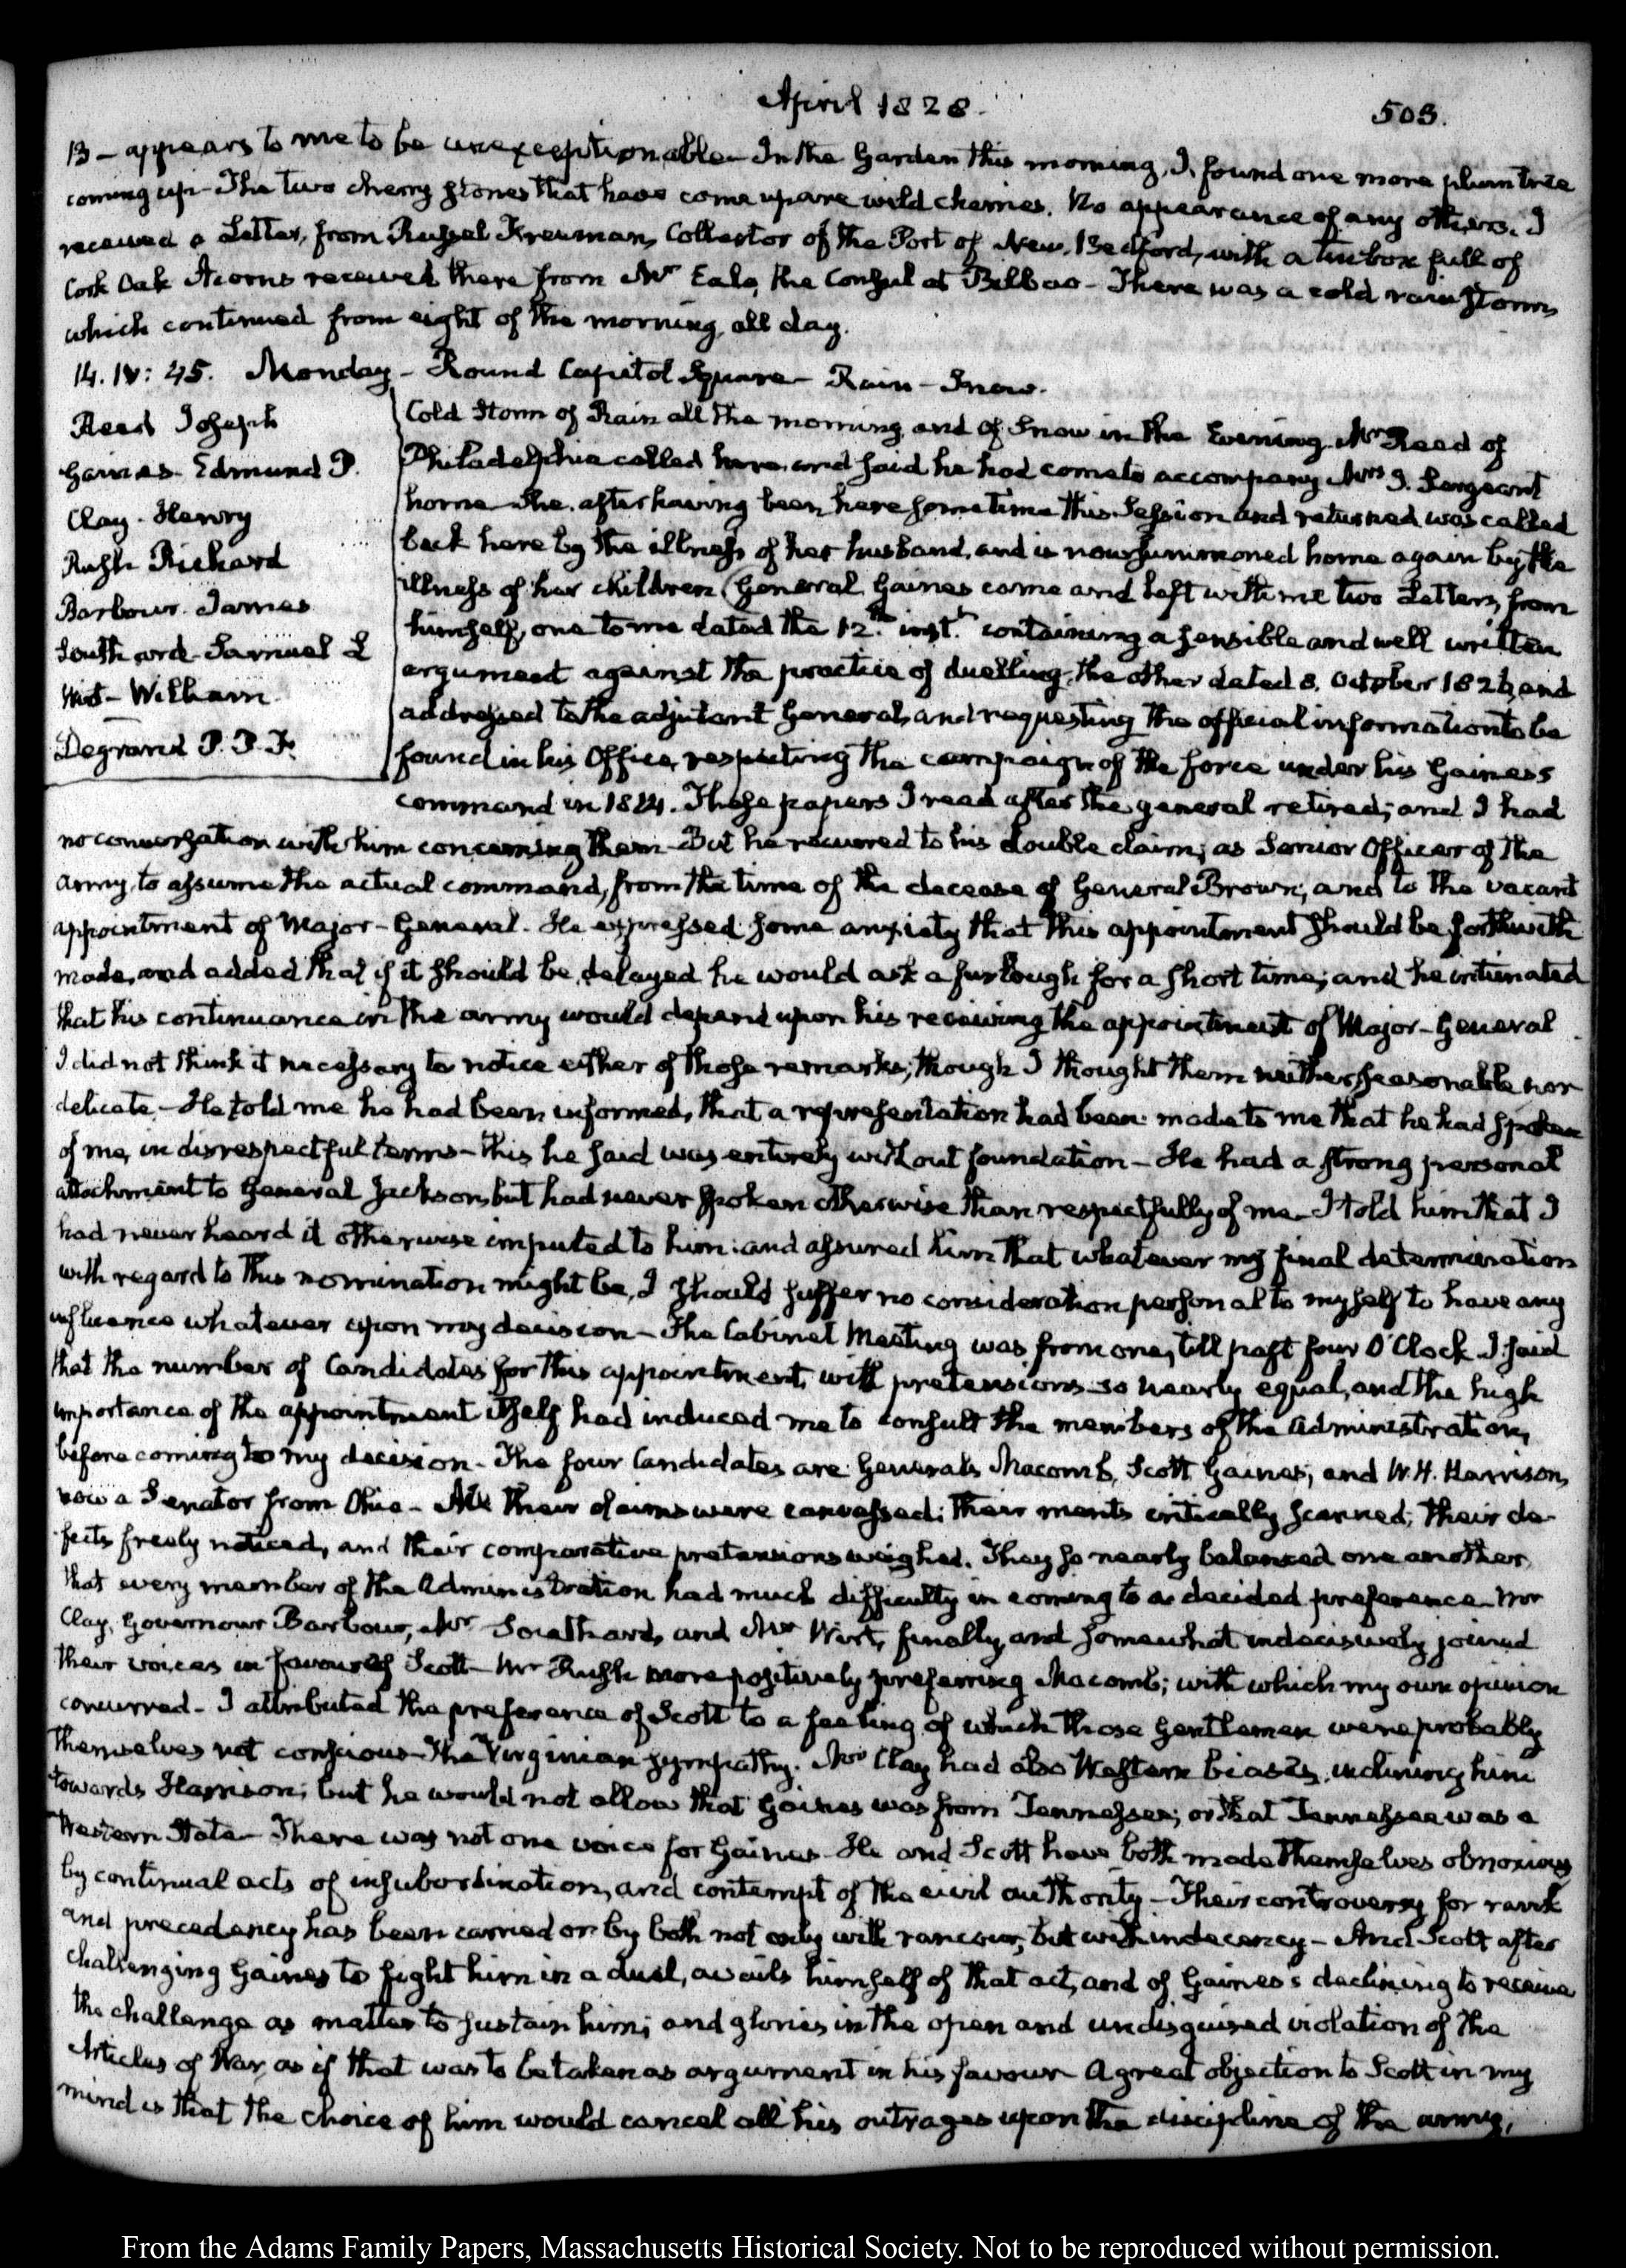 April 1828.
503.
13 – appears to me to be unexceptionable – In the Garden this morning, I found one more plum tree
coming up – The two cherry stones that have come up are wild cherries. No appearance of any others. I
received a Letter, from Russel Freeman, Collector of the Port of New Bedford, with a tin box full of
Cork Oak Acorns received there from Mr. Eala, the Consul at Bilbao – There was a cold rain storm,
which continued from eight of the morning, all day.
14. IV: 45. Monday – Round Capitol Square – Rain – Snow.
Reed Joseph
Gaines Edmund P.
Clay. Henry
Rush Richard
Barbour. James
Southard – Samuel L
Wirt – William
Degrand P. P. F.
Cold Storm of Rain all the morning, and of Snow in the Evening. Mr Reed of
Philadelphia called here and said he had come to accompany Mrs J. Sergeant
home – She, after having been here some time this Session and returned was called
back here by the illness of her husband, and is now summoned home again by the
illness of her children (General Gaines came and left with me two Letters, from
himself, one to me dated the 12th. inst.t containing a sensible and well written
argument against the practice of duelling, the other dated 8. October 1826, and
addressed to the adjutant General, and requesting the official information to be
found in his Office, respecting the campaign of the force under his Gaines's
command in 1814. These papers I read after the general retired; and I had
no conversation with him concerning them – But he recurred to his double claim; as Senior Officer of the
army, to assume the actual command, from the time of the decease of General Brown; and to the vacant
appointment of Major-General. He expressed some anxiety that this appointment should be forthwith
made, and added that if it should be delayed he would ask a furlough for a short time; and he intimated
that his continuance in the army would depend upon his receiving the appointment of Major-General.
I did not think it necessary to notice either of those remarks; though I thought them neither seasonable nor
delicate – He told me he had been informed, that a representation had been made to me that he had spoken
of me, in disrespectful terms – this he said was entirely without foundation – He had a strong personal
attachment to General Jackson, but had never spoken otherwise than respectfully of me – I told him that I
had never heard it otherwise imputed to him: and assured him that whatever my final determination
with regard to this nomination might be, I should suffer no consideration personal to myself to have any
influence whatever upon my decision – The Cabinet Meeting was from one, till past four O'Clock. I said
that the number of Candidates for this appointment, with pretensions so nearly equal, and the high
importance of the appointment itself had induced me to consult the members of the Administration,
before coming to my decision – The four Candidates are Generals Macomb, Scott Gaines, and W. H. Harrison,
now a Senator from Ohio – All their claims were canvassed; their merits critically scanned; their de-
fects freely noticed, and their comparative pretensions weighed. They so nearly balanced one another,
that every member of the Administration had much difficulty in coming to a decided preference – Mr
Clay, Governour Barbour, Mr Southard, and Mr Wirt, finally, and somewhat indecisively joined
their voices in favour of Scott – Mr Rush more positively preferring Macomb; with which my own opinion
concurred – I attributed the preference of Scott to a feeling of which those Gentlemen were probably
themselves not conscious – The Virginian sympathy. Mr Clay had also Western biases, inclining him
towards Harrison; but he would not allow that Gaines was from Tennessee; or that Tennessee was a
Western State – There was not one voice for Gaines – He and Scott have both made themselves obnoxious
by continual acts of insubordination, and contempt of the civil authority – Their controversy for rank
and precedency has been carried on by both not only with rancour, but with indecency – And Scott after
challenging Gaines to fight him in a duel, avails himself of that act, and of Gaines's declining to receive
the challenge as matter to sustain him; and glories in the open and undisguised violation of the
Articles of War, as if that was to be taken as argument in his favour – A great objection to Scott in my
mind is that the choice of him would cancel all his outrages upon the discipline of the army,
From the Adams Family Papers, Massachusetts Historical Society. Not to be reproduced without permission.